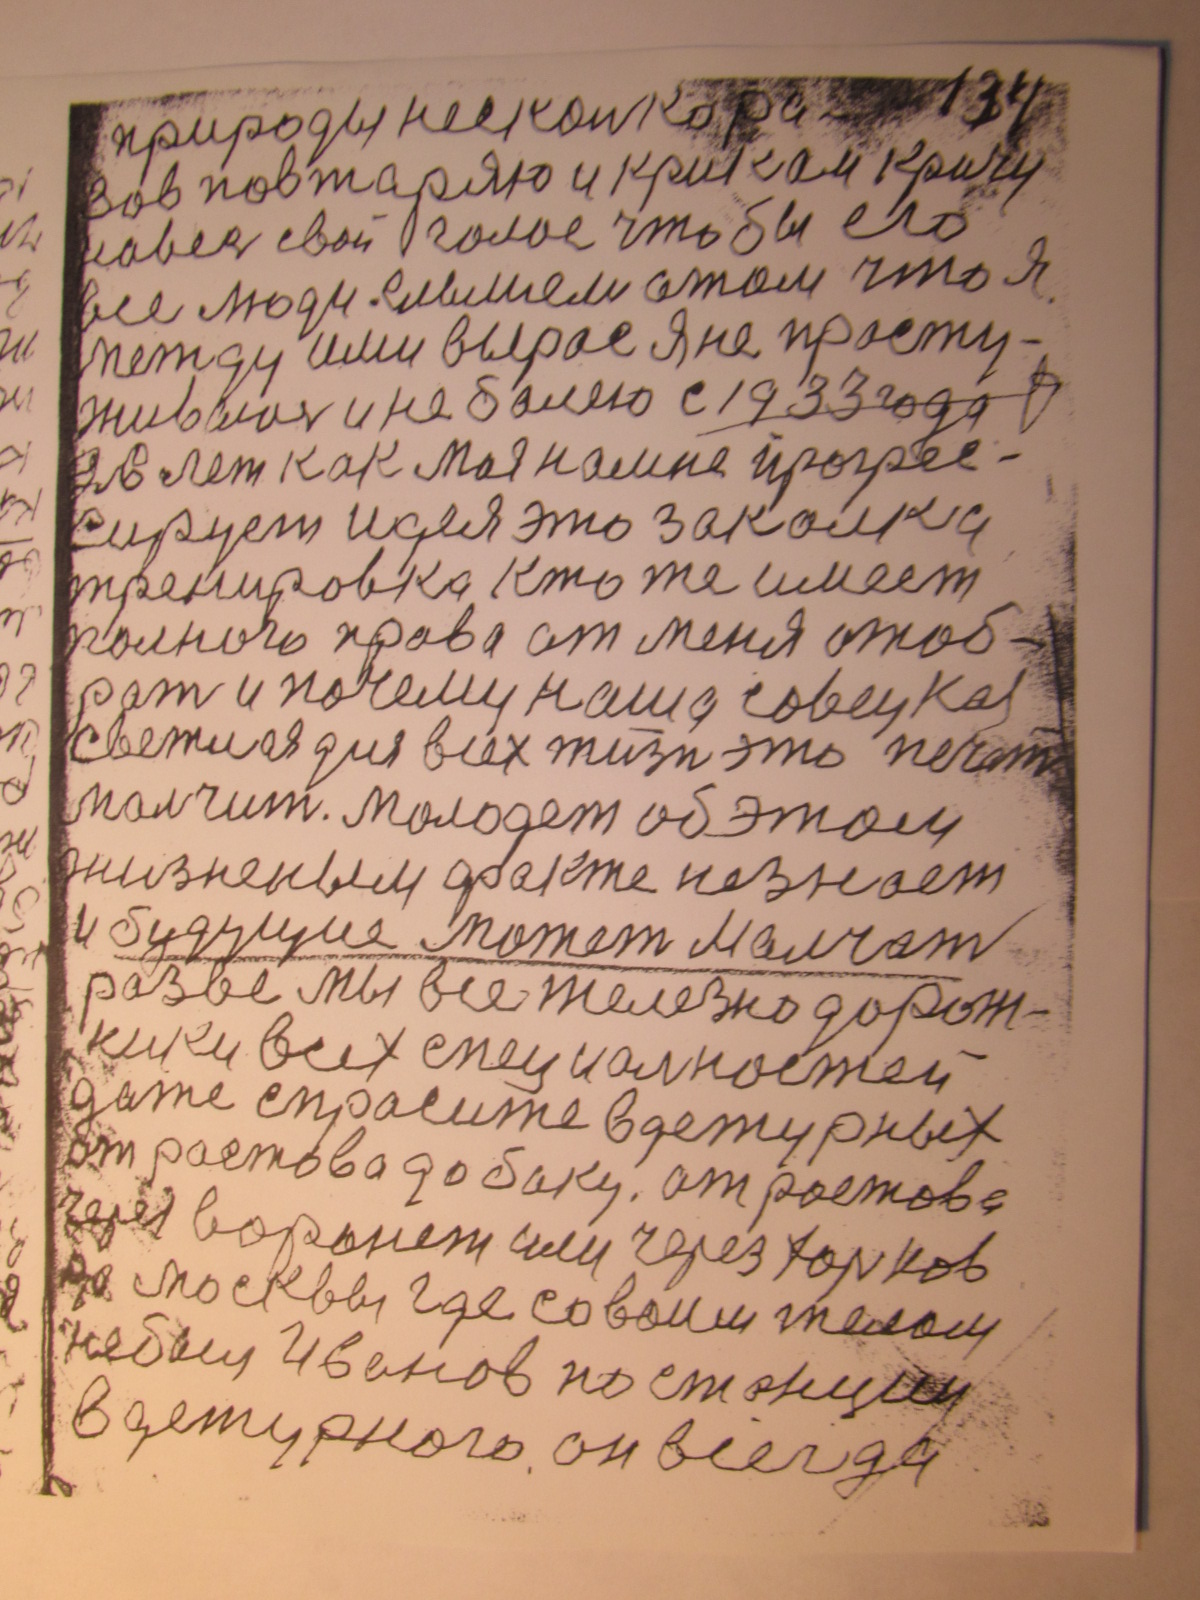 134
природы несколко ра-
зов повтаряю и крикам кричу
на весь свой голос что бы его
все люди слышели отом что я
между ими вырос я не просту-
живалая и не болею с 1933 года
лет как моя на мне прогрес-
сирует идея это закалка
тренировка кто же имеет
полного права от меня отоб-
рат и почему наша совецкая
светлая для всех жизн это печат
малчит. молодеж об этом
жизненым факте незнает
и будущие может малчат
разве мы все железно дорож-
ники всех специалностей
даже спрасите в дежурных
от растова до баку. от ростова
через воронеж или через харков
до москвы где соваим телом
небыл Иванов по станции
в дежурного. он всегда